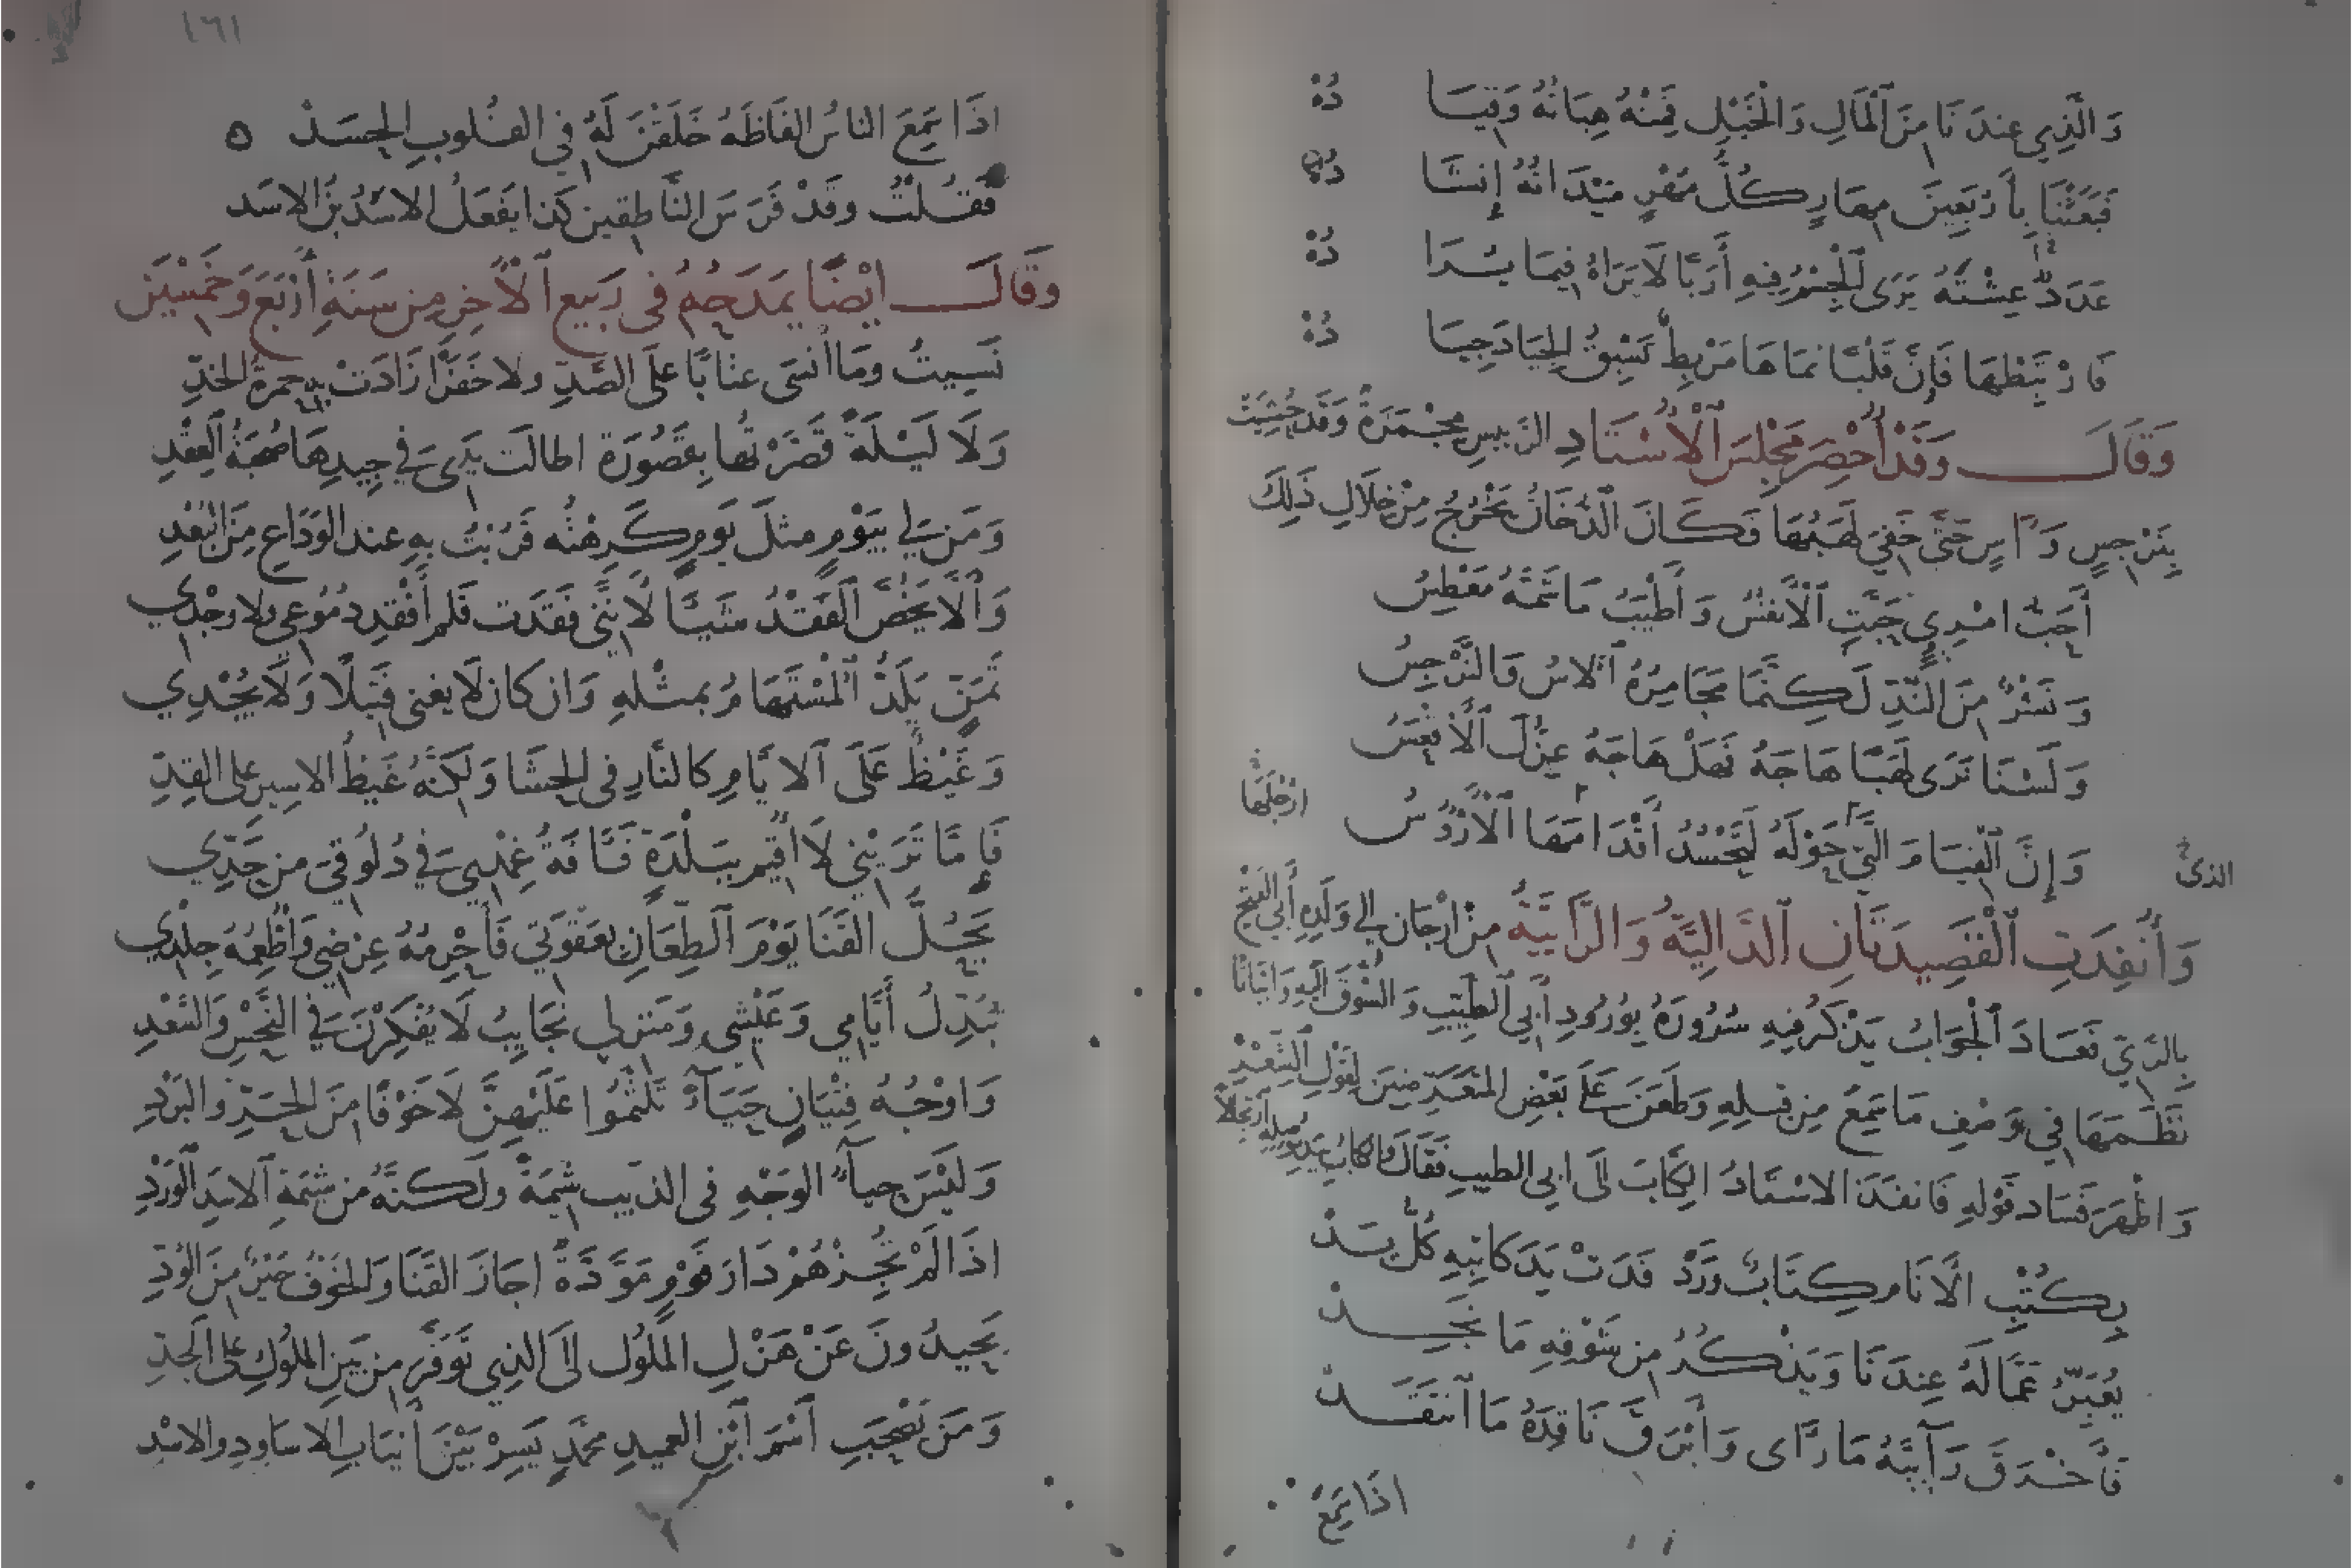 وَالَّذِي عِندَنَا مِنَ ٱلْمَالِ وَالْخَيْلِ فَمِنْهُ هِبَاتُهُ وَقِيَا دُهْ
فَبَعَثْنَا بِأَرْبَعِينَ مِهَارٍ كُلُّ مُهْرٍ مَيْدَانُهُ إِنشَا دُهْ
عَدَدٌ عِشْتَهُ يَرَى ٱلْجِسْمُ فِيهِ أَرَبًا لَا يَرَاهُ فِيمَا يُزَا دُهْ
فَارْتَبِطْهَا فَإِنَّ قَلْبًا نَمَاهَا مَرْبِطٌ تَسْبِقُ الجِيَادَ جِيَا دُهْ
وَقَالَ وَقَدْ أُحْضِرَ مَجْلِسَ ٱلْأُسْتَاذِ الرَّئِيسِ مِجْمَرَةٌ وَقَدْ حُشِيَتْ
بِنَرْجِسٍ وَآسٍ حَتَّى خَفِيَ لَهَبُهَا فَكَانَ الدُّخَانُ يَخْرُجُ مِنْ خِلَالِ ذَلِكَ
أَحَبُّ امْرِئٍ حَبَّتِ ٱلْأَنفُسُ وَأَطْيَبُ مَا شَمَّهُ مَعْطِسُ
وَنَشْرٌ مِنَ النَّدِّ لَكِنَّمَا مَجَامِرُهُ ٱلْآسُ وَالنَّرْجِسُ
وَلَسْنَا نَرَى لَهَبًا هَاجَهُ فَهَلْ هَاجَهُ عِزُّكَ ٱلْأَقْعَسُ
وَإِنَّ ٱلْقِيَامَ الَّتِي حَوْلَهُ لَتَحْسُدُ أَقْدَامَهَا ٱلْأَرْؤُسُ
ارْجُلَهَا
الذى
وَأُنفِذَتِ ٱلْقَصِيدَتَانِ ٱلدَّالِيَّةُ وَالرَّائِيَّةُ مِنْ ارَّجَان إلى وَلَدِهِ أَبِي الفَتْحِ
بِالرَّيِّ فَعَادَ ٱلْجَوَابُ يَذْكُرُ فِيهِ سُرُورَهُ بِوُرُودِ أَبِي الطَّيِّبِ وَالشَّوْقَ إِلَيْهِ وَابْيَاتًا
نَظَمَهَا فِي وَصْفِ مَا سَمِعَ مِن قِبَلِهِ وَطَعَنَ عَلَى بَعْضِ المُتَعَرِّضِينَ لِقَوْلِ ٱلشِّعْرِ
وَاظْهَرَ فَسَادَ قَوْلِهِ فَانفَذَ الاسْتَاذُ الكِتَابَ إلَى ابِي الطيبِ فَقَالَ وَالكِتَابُ بِيَدِهِ ارْتِجَالًا
بِكُتْبِ الأَنَامِ كِتَابٌ وَرَدْ فَدَتْ يَدَ كَاتِبِهِ كُلُّ يَدْ
يُعَبِّرُ عَمَّا لَهُ عِندَنَا وَيَذْكُرُ مِن شَوْقِهِ مَا نَجِدْ
فَأَخْرَقَ رَآئِيَهُ مَا رَأَى وَأَبْرَقَ نَاقِدَهُ مَا ٱنتَقَدْ
اذَا سَمِعَ
١٦١
اذَا سَمِعَ الناسُ الفَاظَهُ خَلَقْنَ لَهُ فِي القُلوبِ الحَسَدْ ه
فَقُلْتُ وقَدْ فَرَسَ النَّاطِقين كَذا يَفعَلُ الاسْدُ بنُ الاسَد
وَقَالَ أيْضًا يَمدَحُهُ في رَبِيع ٱلْأَخِرِ مِن سَنَةِ أَرْبَعَ وَخَمْسِينَ
نَسِيتُ وَمَا أَنسَى عِتَابًا عَلَى الصَّدِّ ولا خَفَرًا زَادَتْ بِهِ حمرةُ الخدِّ
وَلَا لَيْلَةً قَصَّرْتُهَا بِقَصُورَةٍ اطالَت يَدِي فِي جِيدِهَا صُحْبَةَ ٱلعِقْدِ
وَمَن لِي بِيَوْمٍ مثلَ يَومٍ كَرِهْتُه قَرُبْتُ بِهِ عندَ الوَدَاعِ مِنَ البُعْدِ
وَأَلَّا يَخُصَّ ٱلْفَقْدُ شَيْئًا لأَنَّنِي فَقَدت فَلَم أَفْقِد دُمُوعِي ولا وجْدِي
تَمَنٍّ يَلَذُّ ٱلْمُسْتَهَامُ بمثْلِهِ وَان كان لَا يغنى فَتِيلًا وَلَا يُجْدِي
وَغَيْظٌ عَلَى ٱلايَّامِ كالنَّارِ في الحشَا وَلَكِنَّهُ غَيظُ الاسِيرِ على القِدِّ
فَإِمَّا تَرَيْنِي لَا أُقِيمُ بِبَلْدَةٍ فَآفَةُ غِمْدِي فِي دُلُوقِي مِن حَدِّي
يَحُلُّ القَنَا يَوْمَ ٱلطِّعَانِ بِعَقْوَتِي فَأَحْرِمُهُ عِرْضِي وَأُطْعِمُهُ جِلْدِي
تُبَدِّلُ أَيَّامِي وَعَيْشِي وَمَنزِلِي نَجَائِبُ لَا يُفْكِرْنَ فِي النَّحْسِ وَالسَّعْدِ
وَاوْجُهُ فِتْيَانٍ حَيَاءً تَلَثَّمُوا عَلَيْهِنَّ لَا خَوْفًا مِنَ الحَرِّ والبَرْدِ
وَلَيْسَ حياءُ الوَجْهِ فى الذيب شِيمَةً ولَكنَّهُ من شِيمَةِ ٱلاسَدِ ٱلْوَرْدِ
اذَا لَمْ تُجِزْهُمْ دَارَ قَوْمٍ مَوَدَّةٌ اجَازَ القَنَا وَالخَوْفُ خَيْرٌ مِنَ الوُدِّ
يَحِيدُونَ عَنْ هَزْلِ المُلُوكِ إلَى الذِي تَوَفَّرَ مِن بَيْنِ المُلوكِ على الجِدِّ
وَمَن يَصْحَبِ ٱسْمَ ٱبْنِ العميدِ محَمَّدٍ يَسِرْ بَيْنَ أَنيَابِ الاسَاوِدِ والاسْدِ